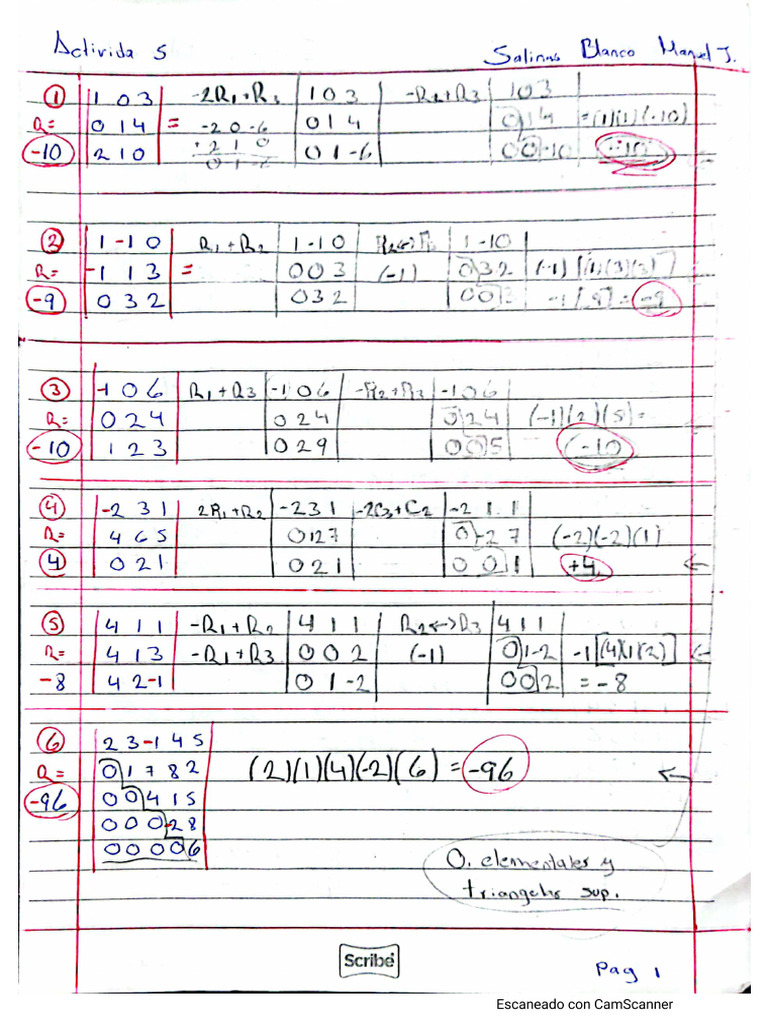 Activida 5 Salinas Blanco Manuel J.
① 1 0 3 -2R1+R3 1 0 3 -R2+R3 1 0 3
R= 0 1 4 = -2 0 -6 0 1 4 0 1 4 =(1)(1)(-10)
-10 2 1 0 + 2 1 0 0 1 -6 0 0 -10 -10
0 1 -6
② 1 -1 0 R1+R2 1 -1 0 1 -1 0
R= -1 1 3 = 0 0 3 (-1) 0 3 2 (-1) [(1)(3)(3)]
-9 0 3 2 0 3 2 0 0 3 -1[9] = -9
③ -1 0 6 R1+R3 -1 0 6 -R2+R3 -1 0 6
R= 0 2 4 0 2 4 0 2 4 (-1)(2)(5)=
-10 1 2 3 0 2 9 0 0 5 -10
④ -2 3 1 2R1+R2 -2 3 1 -2C3+C2 -2 1 1
R= 4 6 5 0 12 7 0 -2 7 (-2)(-2)(1)
4 0 2 1 0 2 1 0 0 1 +4 ←
⑤ 4 1 1 -R1+R2 4 1 1 R2↔R3 4 1 1
R= 4 1 3 -R1+R3 0 0 2 (-1) 0 1 -2 -1[(4)(1)(2)] ←
-8 4 2 -1 0 1 -2 0 0 2 = -8
⑥ 2 3 -1 4 5
R= 0 1 7 8 2 (2)(1)(4)(-2)(6) = -96 ←
-96 0 0 4 1 5
0 0 0 -2 8
0 0 0 0 6
O. elementales y
triangular sup.
Scribe
Pag 1
Escaneado con CamScanner